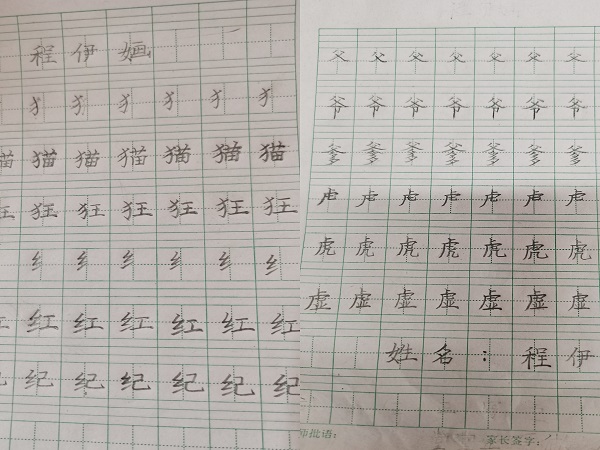 程伊婳
犭犭犭犭犭犭
猫猫猫猫猫猫猫
狂狂狂狂狂狂狂
纟纟纟纟纟纟
红红红红红红红
纪纪纪纪纪纪纪
父父父父父父
爷爷爷爷爷爷爷
爹爹爹爹爹爹爹
虍虍虍虍虍虍虍
虎虎虎虎虎虎虎
虚虚虚虚虚虚虚
姓名:程伊
师批语: 家长签字: